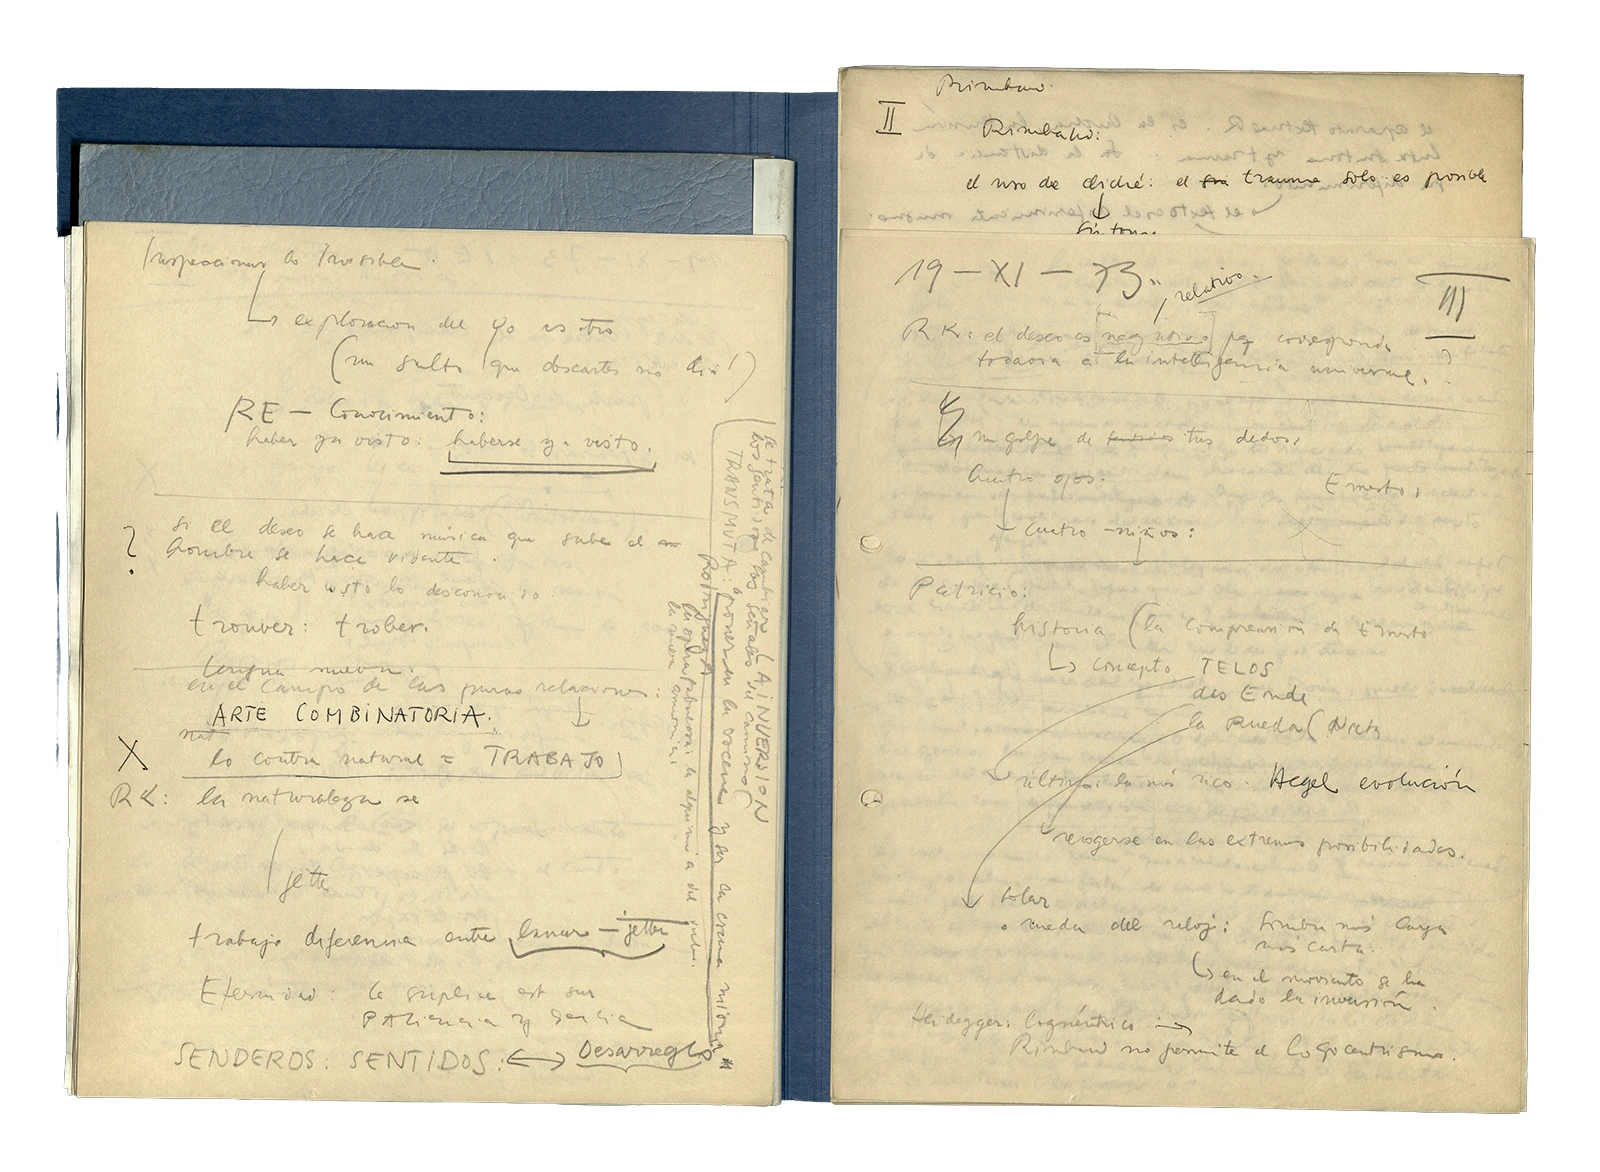 Inspeccionar lo Invisible.
↳ exploracion del yo es otro
(un salto que descartes no dió!)
RE – Conocimiento:
haber ya visto: haberse ya visto.
? Si el deseo se hace música que sube el
hombre se hace vidente.
haber visto lo desconocido.
trouver: trober.
lengua nueva.
en el campo de las puras relaciones:
ARTE COMBINATORIA.
nat
X lo contra natural = TRABAJO
RK: la naturaleza se
jette
trabajo diferencia entre lanzar – jetter
Eternidad: le suplice est sur
PAciencia y
SENDEROS: SENTIDOS: ↔ Desarreglo
se trata de cambiar LA INVERSION
los sentidos las señales del camino (
TRANSMUTA: poner en la
la alquimia del verbo.
la nueva armonia:
Rimbaud.
II
Rimbaud:
el uso de cliché: el trauma solo es posible
↓
síntoma
19 – XI – 73..
relativo.
III
?
RK: el deseo es negativo pq corresponde
todavia a la intelligencia universal.
un golpe de tus dedos.
Cuatro ojos.
Ernesto,
cuatro niños:
Patricio:
historia (la comprensión de Ernesto
↳ concepto TELOS
das Ende
la Rueda (
última: la más rico. Hegel evolución
recogerse en las extremas posibilidades.
solar
rueda del reloj: sombra más larga
más corta.
↳ en el movimiento se ha
dado la inversión.
Heidegger: logocéntrico →
Rimbaud no permite el logocentrismo.